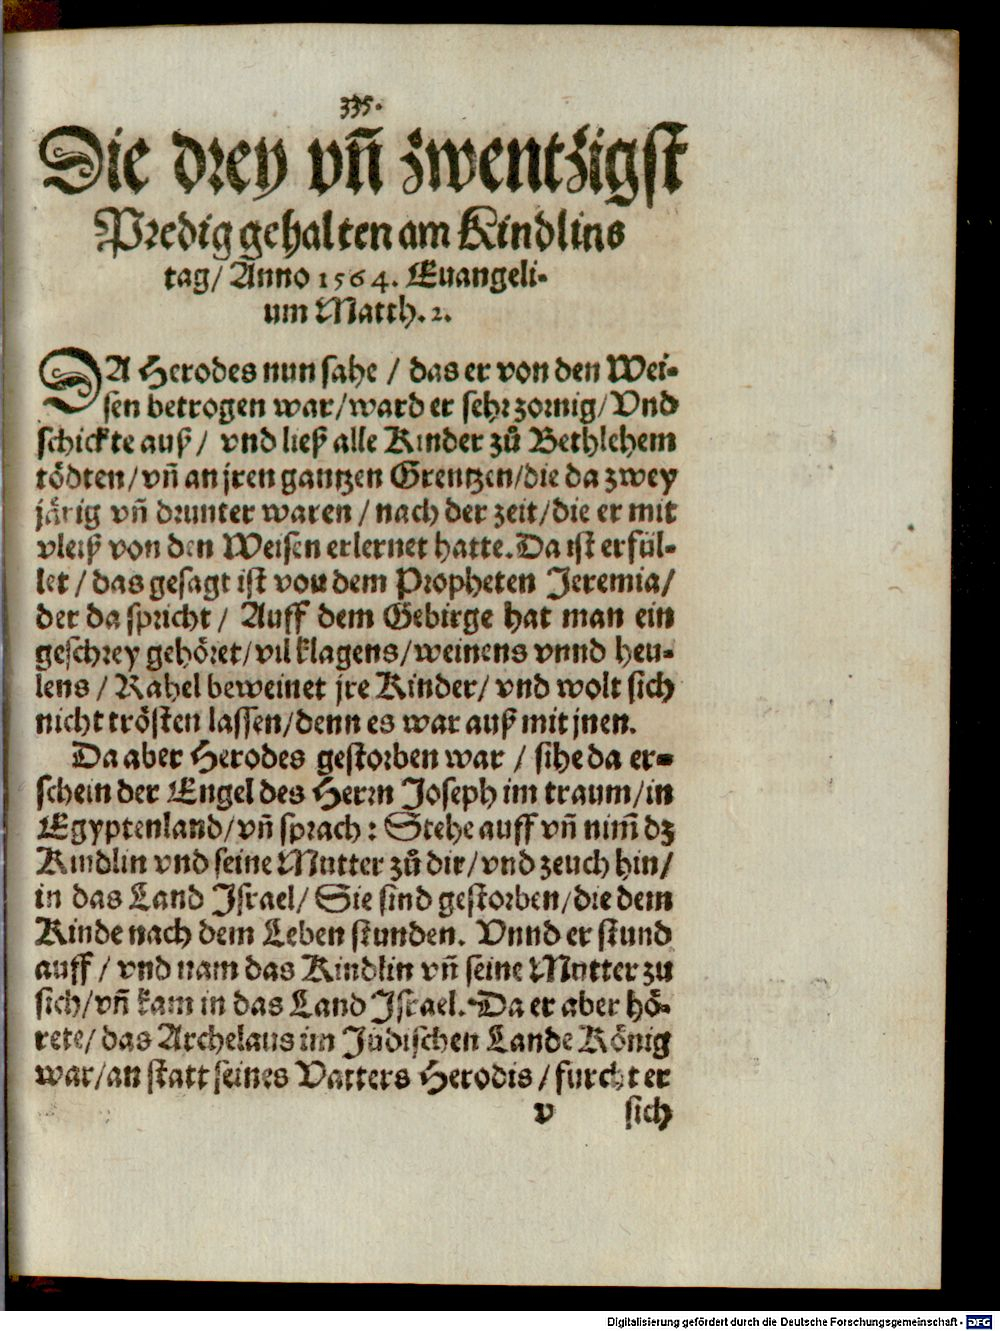 335.
Die drey vñ zwentzigst
Predig gehalten am Kindlins
tag/ Anno 1564. Euangeli-
um Matth. 2.
DA Herodes nun sahe / das er von den Wei-
sen betrogen war/ward er sehr zornig/Vnd
schickte auß / vnd ließ alle Kinder zů Bethlehem
tödten/vñ an jren gantzen Grentzen/die da zwey
järig vñ drunter waren / nach der zeit/die er mit
vleiß von den Weisen erlernet hatte. Da ist erfül-
let / das gesagt ist von dem Propheten Jeremia/
der da spricht / Auff dem Gebirge hat man ein
geschrey gehöret/vil klagens/weinens vnnd heu-
lens / Rahel beweinet jre Kinder/ vnd wolt sich
nicht trösten lassen/denn es war auß mit jnen.
Da aber Herodes gestorben war / sihe da er-
schein der Engel des Herrn Joseph im traum/in
Egyptenland/vñ sprach: Stehe auff vñ nim̃ dz
Kindlin vnd seine Mutter zů dir/vnd zeuch hin/
in das Land Jsrael/ Sie sind gestorben/die dem
Kinde nach dem Leben stunden. Vnnd er stund
auff / vnd nam das Kindlin vñ seine Mutter zu
sich/vñ kam in das Land Jsrael. Da er aber hö-
rete/das Archelaus im Jüdischen Lande König
war/an statt seines Vatters Herodis / furcht er
v sich
Digitalisierung gefördert durch die Deutsche Forschungsgemeinschaft - DFG